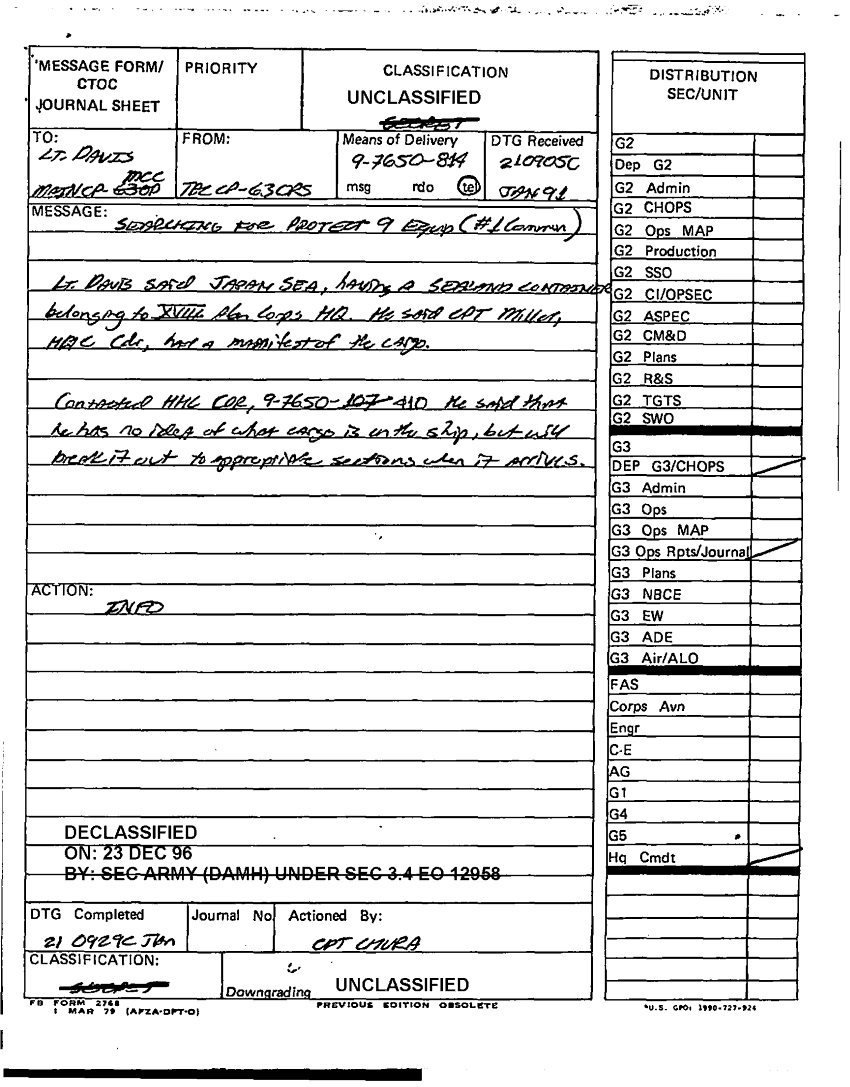 MESSAGE FORM/
CTOC
JOURNAL SHEET
PRIORITY
CLASSIFICATION
UNCLASSIFIED
SECRET
TO:
LT. DAVIS
MCC
MAIN CP
FROM:
CP-G3OPS
Means of Delivery
9-7650-814
msg rdo tel
DTG Received
210905C
JAN 91
MESSAGE:
SEARCHING FOR PROTECT 9 Equip (#1 Commun)
LT. DAVIS SAID JAPAN SEA, having A SEALAND CONTAINER
belonging to XVIII Abn Corps HQ. He said CPT Miller,
HHC Cdr, has a manifest of the cargo.
Contacted HHC CDR, 9-7650-107 410 He said that
he has no idea of what cargo is on the ship, but will
break it out to appropriate sections when it arrives.
ACTION:
INFO
DECLASSIFIED
ON: 23 DEC 96
BY: SEC ARMY (DAMH) UNDER SEC 3.4 EO 12958
DTG Completed
21 0929C Jan
Journal No
Actioned By:
CPT CHURA
CLASSIFICATION:
SECRET
Downgrading
UNCLASSIFIED
FB FORM 2768
1 MAR 79 (AFZA-DPT-O)
PREVIOUS EDITION OBSOLETE
DISTRIBUTION
SEC/UNIT
G2
Dep G2
G2 Admin
G2 CHOPS
G2 Ops MAP
G2 Production
G2 SSO
G2 CI/OPSEC
G2 ASPEC
G2 CM&D
G2 Plans
G2 R&S
G2 TGTS
G2 SWO
G3
DEP G3/CHOPS
G3 Admin
G3 Ops
G3 Ops MAP
G3 Ops Rpts/Journal
G3 Plans
G3 NBCE
G3 EW
G3 ADE
G3 Air/ALO
FAS
Corps Avn
Engr
C-E
AG
G1
G4
G5
Hq Cmdt
*U.S. GPO: 1990-727-924